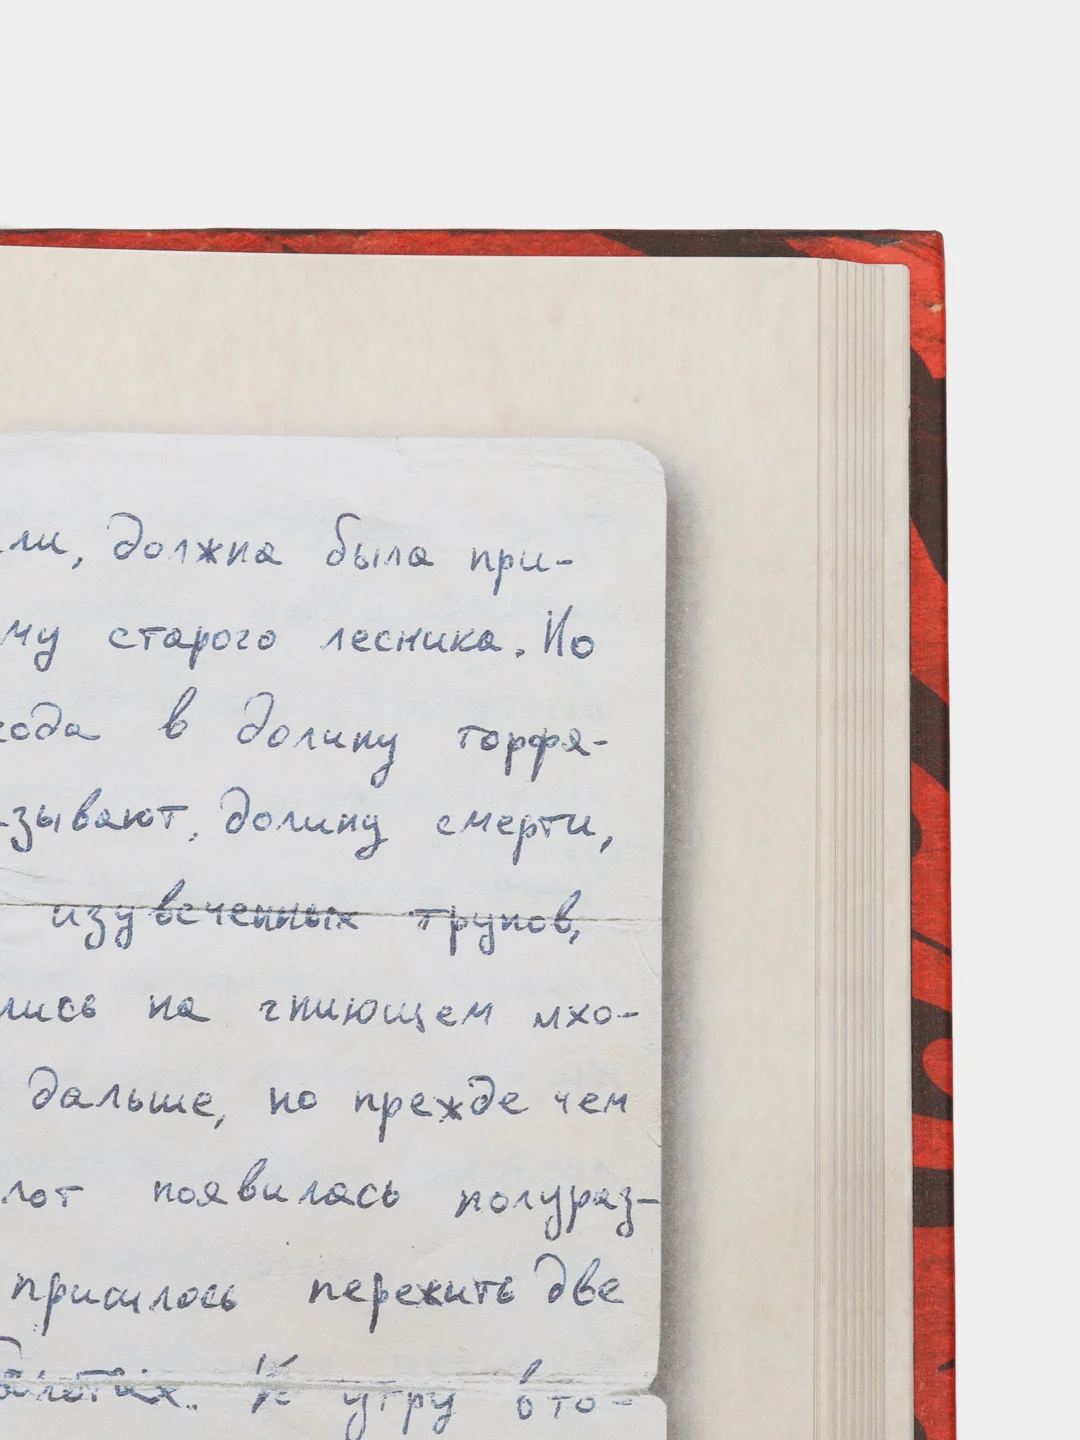 ли, должна была при-
му старого лесника. Но
хода в долину торфя-
зывают, долину смерти,
изувеченных трупов,
лись на гниющем мхо-
дальше, но прежде чем
лот появилась полураз-
пришлось пережить две
болотах. К утру вто-